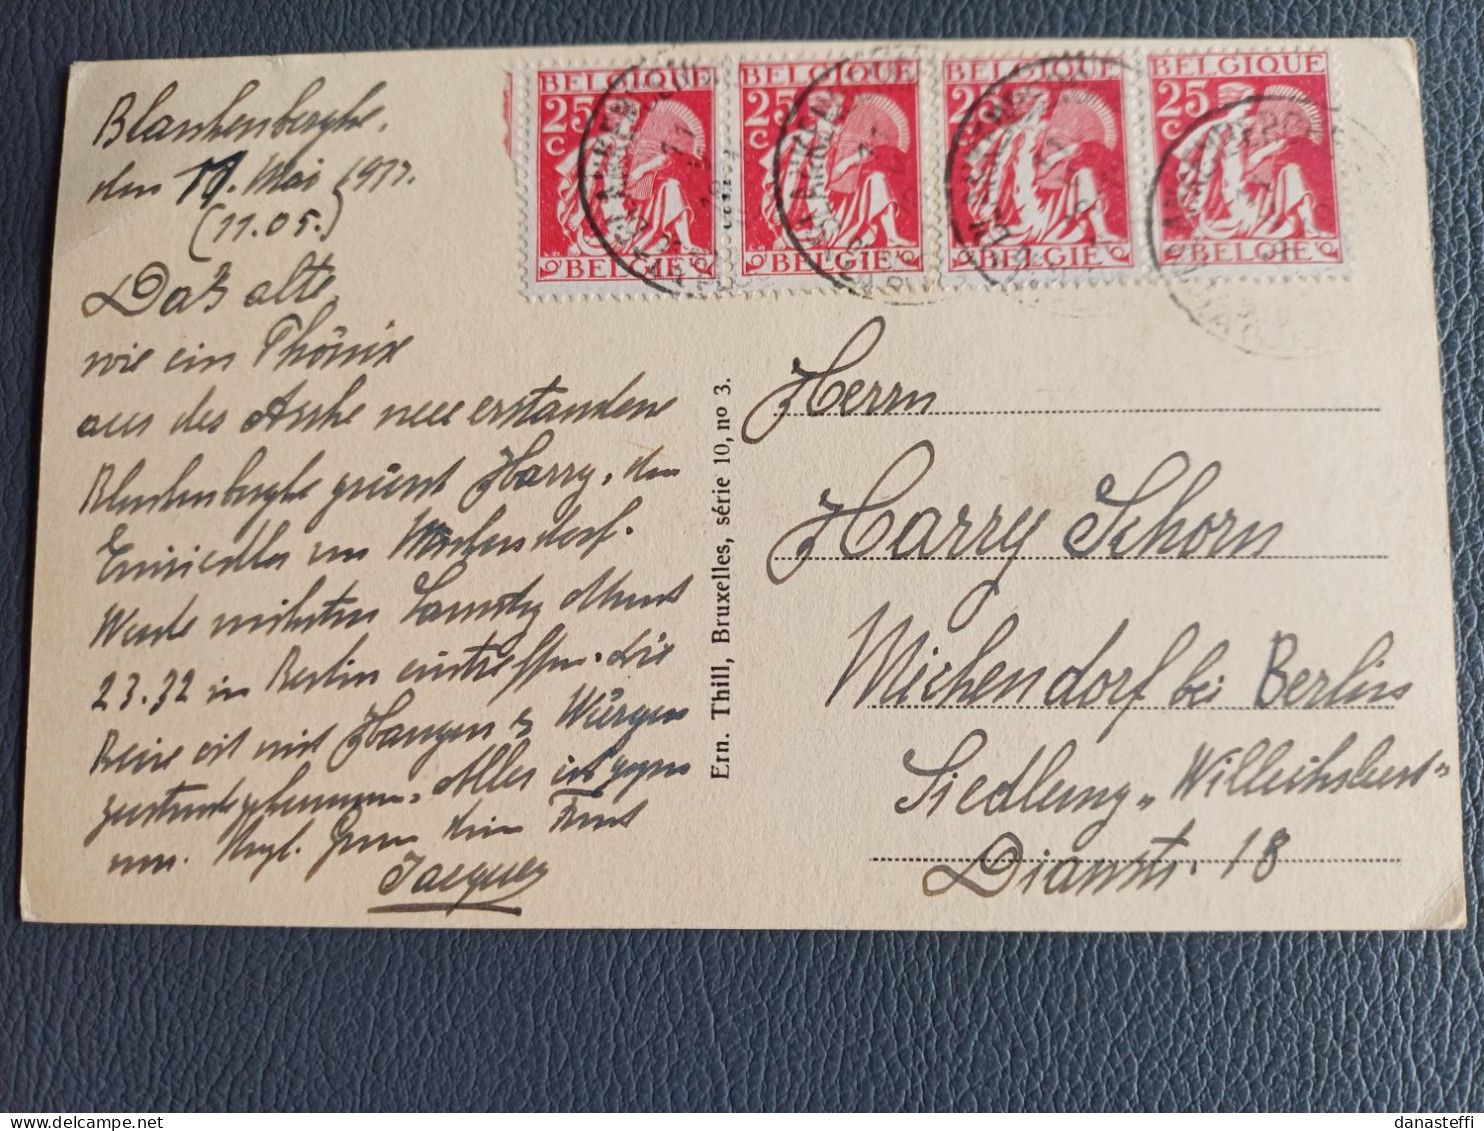 Blankenberghe,
den 11. Mai 1933.
(11.05.)
Das alte,
wie ein Phönix
aus der Asche neu erstandene
Blankenberghe grüsst Harry, den
Einsiedler von Michendorf.
Werde nächsten Samstag Abend
23.32 in Berlin eintreffen. Die
Reise ist mit Hangen & Würgen
zustandegekommen. Alles ist gegen
uns. Vrgl. Gruss Dein Freund
Jacques
BELGIQUE BELGIQUE BELGIQUE BELGIQUE
25 C 25 C 25 C 25 C
BELGIE BELGIE BELGIE BELGIE
Ern. Thill, Bruxelles, série 10, no 3.
Herrn
Harry Schorn
Michendorf bei Berlin
Siedlung „Willichslust"
Dianstr. 18
danasteffi